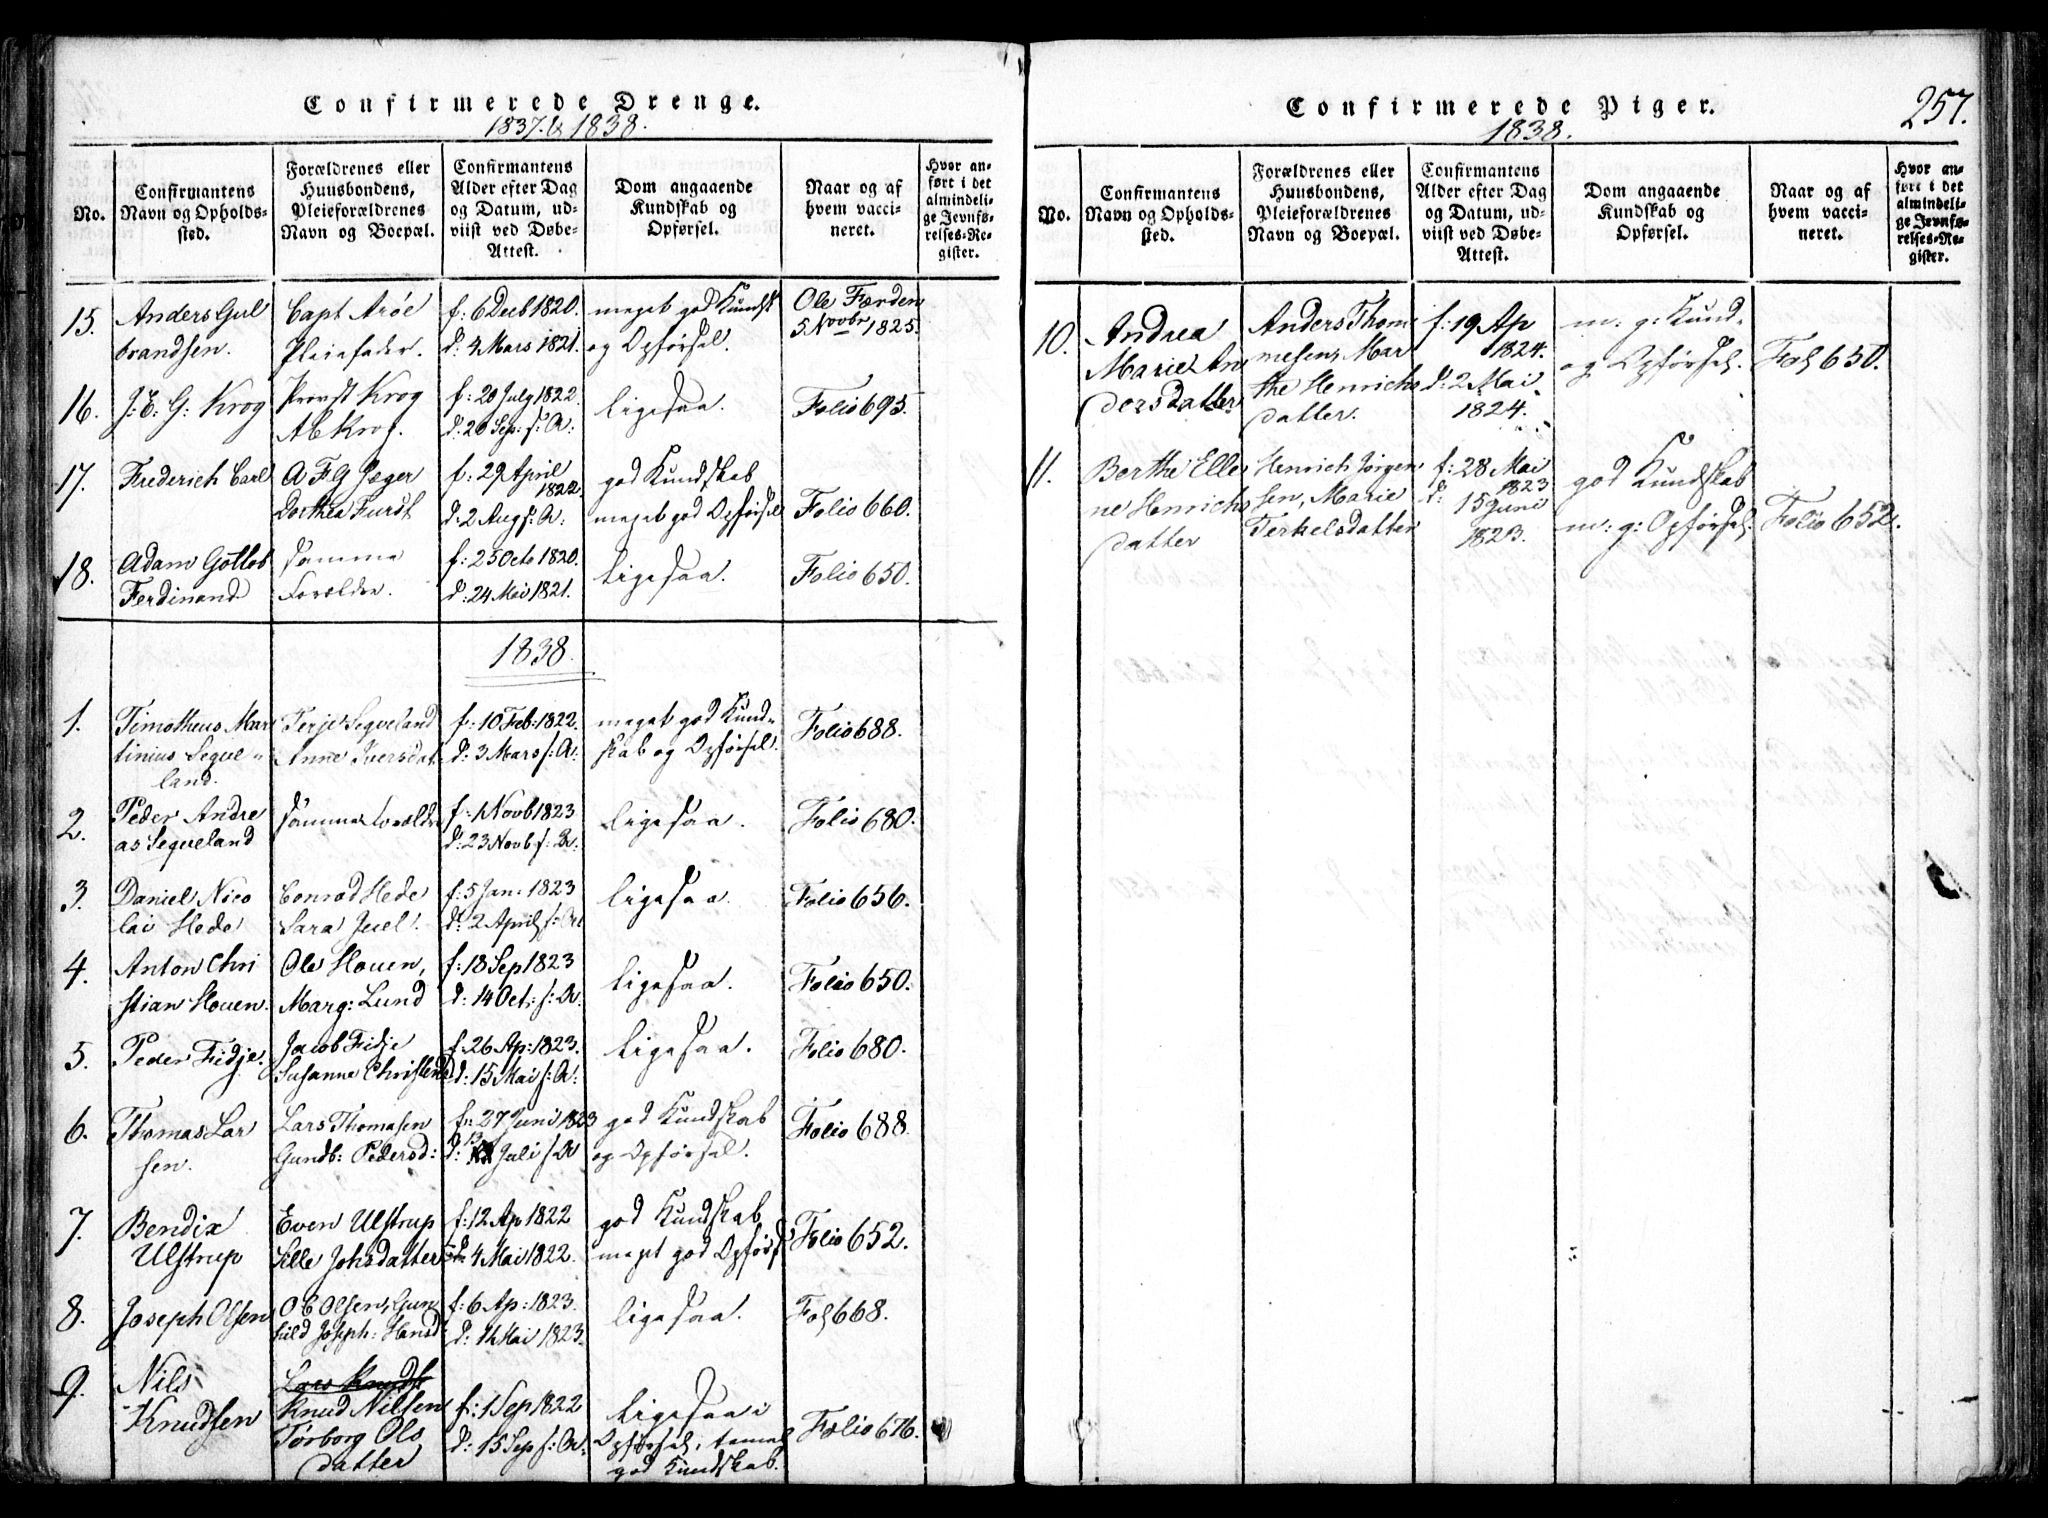 Confirmerede Drenge.
1837. & 1838.
No.
Confirmantens
Navn og Opholds-
sted.
Forældrenes eller
Huusbondens,
Pleieforældrenes
Navn og Boepæl.
Confirmantens
Alder efter Dag
og Datum, ud-
viist ved Døbe-
Attest.
Dom angaaende
Kundskab og
Opførsel.
Naar og af
hvem vacci-
neret.
Hvor an-
ført i det
almindeli-
ge Jevnfø-
relses-Re-
gister.
15.
Anders Gul
brandsen.
Capt Arøe
Pleiefader.
f: 6 Decb 1820.
d: 4 Mars 1821.
meget god Kundsk
og Opførsel.
Ole Færden
5 Novbr 1825.
16.
J: E: G: Krog
Provst Krog
A C Krog.
f: 20 July 1822.
d: 20 Sep: s: A:
ligesaa.
Folio 695.
17.
Frederich Carl
A F G Jæger
Dorthea Furst
f: 29 April
1822.
d: 2 Aug s: A:
god Kundskab
meget god Opførsel
Folio 660.
18.
Adam Gotlob
Ferdinand
samme
Forældre.
f: 25 Octo 1820.
d: 24 Mai 1821.
ligesaa.
Folio 650.
1838.
1.
Timotheus Mar
tinius Segve-
land.
Terje Segveland
Anne Iversdat.
f: 10 Feb: 1822.
d: 3 Mars s: A:
meget god Kund-
skab og Opførsel.
Folio 688.
2.
Peder Andre
as Segveland
samme Forældre
f: 1 Novb 1823
d: 23 Novb s: A:
ligesaa.
Folio 680.
3.
Daniel Nico
lai Hede
Conrad Hede
Sara Juel.
f: 5 Jan: 1823
d: 2 April s: A:
ligesaa.
Folio 656.
4.
Anton Chri
stian Houen.
Ole Houen,
Marg: Lund
f: 18 Sep 1823
d: 14 Oct: s: A:
ligesaa.
Folio 650.
5.
Peder Fidje.
Jacob Fidje
Susanne Christend
f: 26 Ap: 1823.
d: 15 Mai s: A:
ligesaa.
Folio 680.
6.
Thomas Lar
sen.
Lars Thomasen
Gundb: Pedersd:
f: 27 Juni 1823
d: 13 Juli s: A
god Kundskab
og Opførsel.
Folio 688.
7.
Bendix
Ulstrup
Even Ulstrup
Sille Johsdatter
f: 12 Ap 1822
d: 4 Mai 1822.
god Kundskab
meget god Opførs:
Folio 652.
8.
Joseph Olsen
O C Olsen, Gun
hild Joseph: Hansd
f: 6 Ap: 1823.
d: 11 Mai 1823.
ligesaa.
Fol 668.
9.
Nils
Knudsen
Lars Knuds
Knud Nilsen
Torborg Ols
datter
f: 1 Sep 1822
d: 15 Sep s: A:
ligesaa i
Opførsel, temel
god Kundskab.
Folio 676.
Confirmerede Piger.
1838.
257.
No.
Confirmantens
Navn og Opholds-
sted.
Forældrenes eller
Huusbondens,
Pleieforældrenes
Navn og Boepæl.
Confirmantens
Alder efter Dag
og Datum, ud-
viist ved Døbe-
Attest.
Dom angaaende
Kundskab og
Opførsel.
Naar og af
hvem vacci-
neret.
Hvor an-
ført i det
almindeli-
ge Jevnfø-
relses-Re-
gister.
10.
Andrea
Marie An
dersdatter
Anders Thom
mesen, Mar
the Henrichs
datter.
f: 19 Ap
1824.
d: 2 Mai
1824.
m: g: Kund-
og Opførsel.
Fol 650.
11.
Berthe Elle
ne Henrichs
datter
Henrich Jørgen
sen, Marie
Terkelsdatter
f: 28 Mai
1823
d: 15 Juni
1823.
god Kundskab
m: g: Opførsel.
Folio 652.